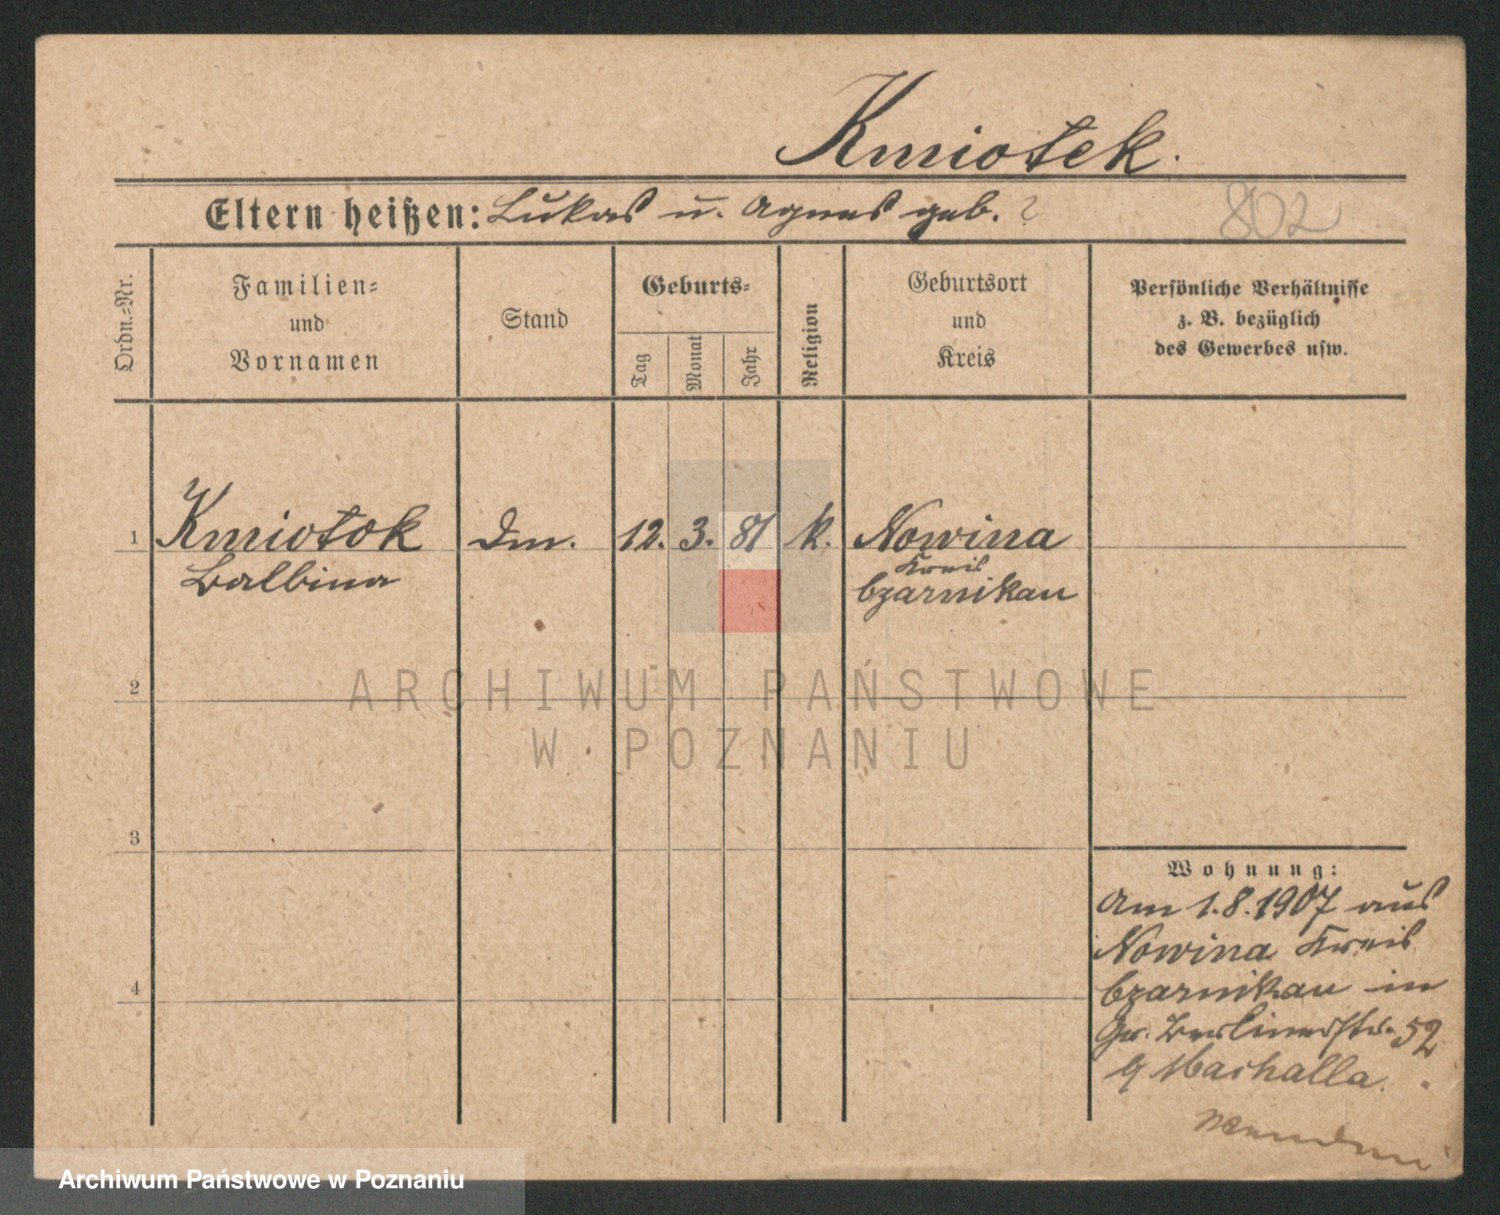 Kmiotek.
Eltern heißen: Lukas u. Agnes geb. ?
802
Ordn.-Nr.
Familien-
und
Vornamen
Stand
Geburts-
Tag
Monat
Jahr
Religion
Geburtsort
und
Kreis
Persönliche Verhältnisse
z. B. bezüglich
des Gewerbes usw.
1 Kmiotek Dm. 12. 3. 81 k. Nowina
Balbina
Kreis
Czarnikau
2
ARCHIWUM PAŃSTWOWE
W POZNANIU
3
Wohnung:
am 1.8.1907 aus
Nowina Kreis
4
Czarnikau in
Gr. Berlinerstr. 52
Machalla.
Wenden
Archiwum Państwowe w Poznaniu